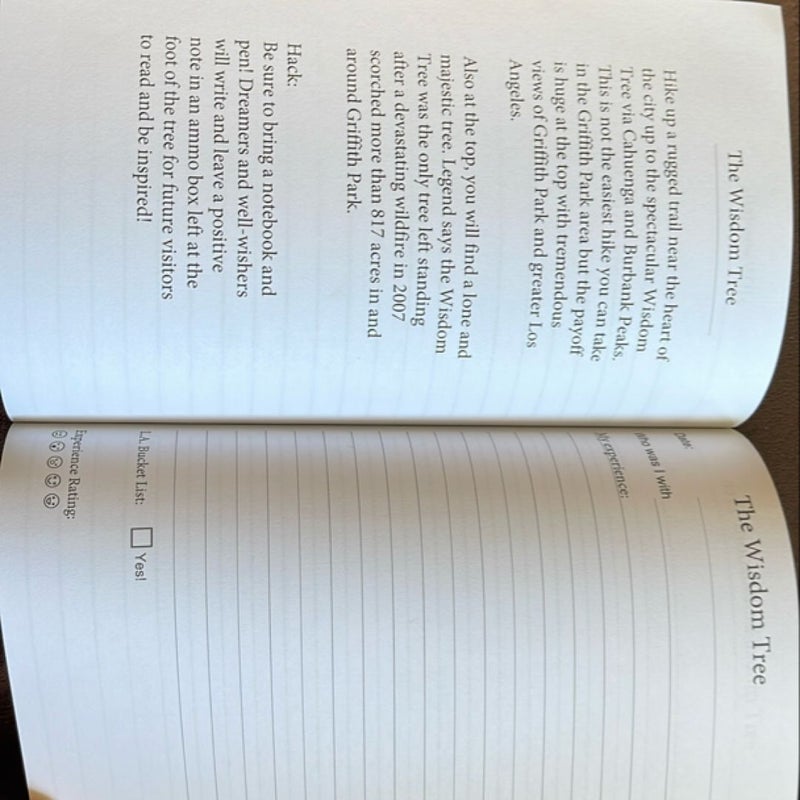 The Wisdom Tree
Hike up a rugged trail near the heart of
the city up to the spectacular Wisdom
Tree via Cahuenga and Burbank Peaks.
This is not the easiest hike you can take
in the Griffith Park area but the payoff
is huge at the top with tremendous
views of Griffith Park and greater Los
Angeles.
Also at the top, you will find a lone and
majestic tree. Legend says the Wisdom
Tree was the only tree left standing
after a devastating wildfire in 2007
scorched more than 817 acres in and
around Griffith Park.
Hack:
Be sure to bring a notebook and
pen! Dreamers and well-wishers
will write and leave a positive
note in an ammo box left at the
foot of the tree for future visitors
to read and be inspired!
The Wisdom Tree
Date:
Who was I with
My experience:
L.A. Bucket List: Yes!
Experience Rating: